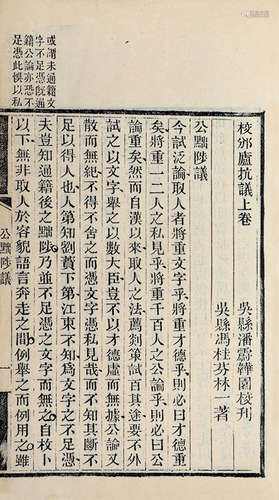 校邠廬抗議上卷
吳縣潘霨韡園校刊
吳縣馮桂芬林一著
公黜陟議
今試泛論取人者將重文字乎將重才德乎則必曰才德
重矣將重一二人之私見乎將重千百人之公論乎則必曰公
論重矣然而自漢以來取人之法薦剡策試百其途要不外
試之以文字舉之以數大臣豈不以才德虛而無據公論又
散而無紀不得不舍之而憑文字憑私見哉而不知其斷不
足以得人也人第知劉蕡下第江東不知為文字之不足憑
夫豈知通籍後之黜陟乃並不足憑之文字而無之自枚卜
以下無非取人於容貌語言奔走之間例舉之而例用之雖
或謂未通籍文
字不足憑既通
籍公論亦恐不
足憑此悞以私
公黜陟議
一